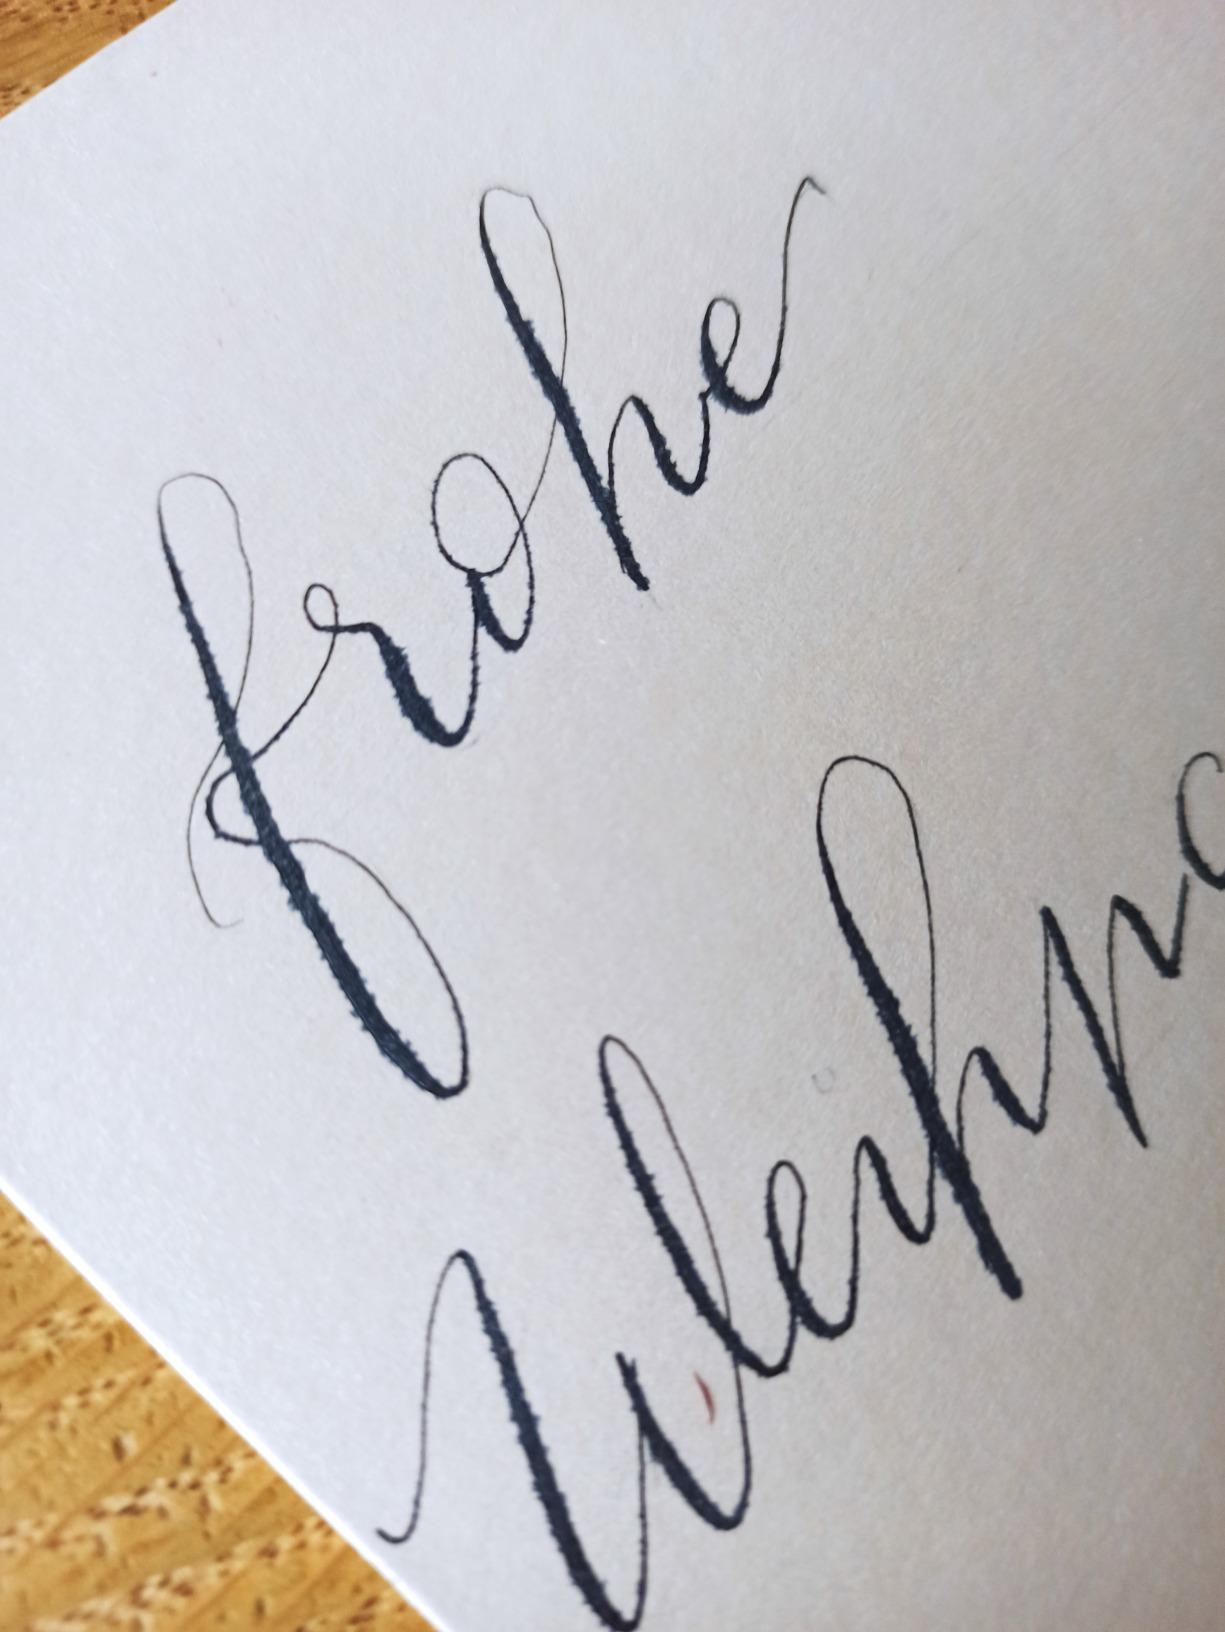 frohe
Weihna